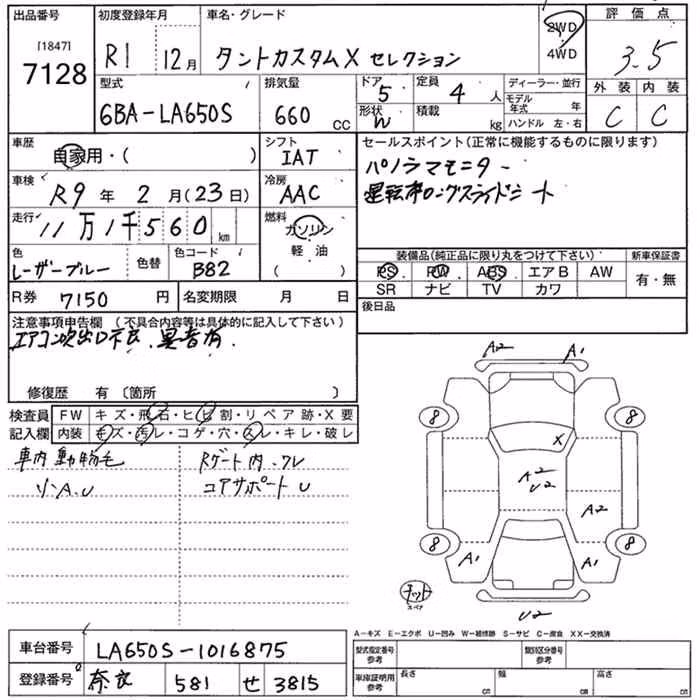 出品番号
[1847]
7128
初度登録年月
R1 12月
車名・グレード
タントカスタムX セレクション
2WD
4WD
評価点
3.5
外装 内装
C C
型式
6BA-LA650S
排気量
660 CC
ドア
5
形状
定員
4 人
積載
kg
ディーラー・並行
モデル年式 年
ハンドル 左・右
車歴
自家用・( )
シフト
IAT
車検
R9年 2月(23日)
冷房
AAC
走行
11万1千560km
燃料
ガソリン
軽油
( )
色
レーザーブルー
色替
色コード
B82
R券 7150円
名変期限 月 日
セールスポイント(正常に機能するものに限ります)
パノラマモニター
運転席ロングスライドシート
装備品(純正品に限り丸をつけて下さい)
新車保証書
PS PW ABS エアB AW
SR ナビ TV カワ
有・無
後日品
注意事項申告欄 (不具合内容等は具体的に記入して下さい)
エアコン吹出口不良、異音有.
修復歴 有 〔箇所 〕
検査員記入欄
FW キズ・飛石・ヒビ割・リペア跡・X要
内装 キズ・汚レ・コゲ・穴・スレ・キレ・破レ
車内動物毛
Rゲート内 ワレ
コアサポートU
A2 A1
8 8
X
A2
U2
A2
8 8
A1 A1
スペア
U2
A-キズ E-エクボ U-凹み W-補修跡 S-サビ C-腐食 XX-交換済
車台番号 LA650S-1016875
登録番号 奈良 581 せ 3815
型式指定番号 参考
類別区分番号 参考
車庫証明用 参考
長さ cm
幅 cm
高さ cm